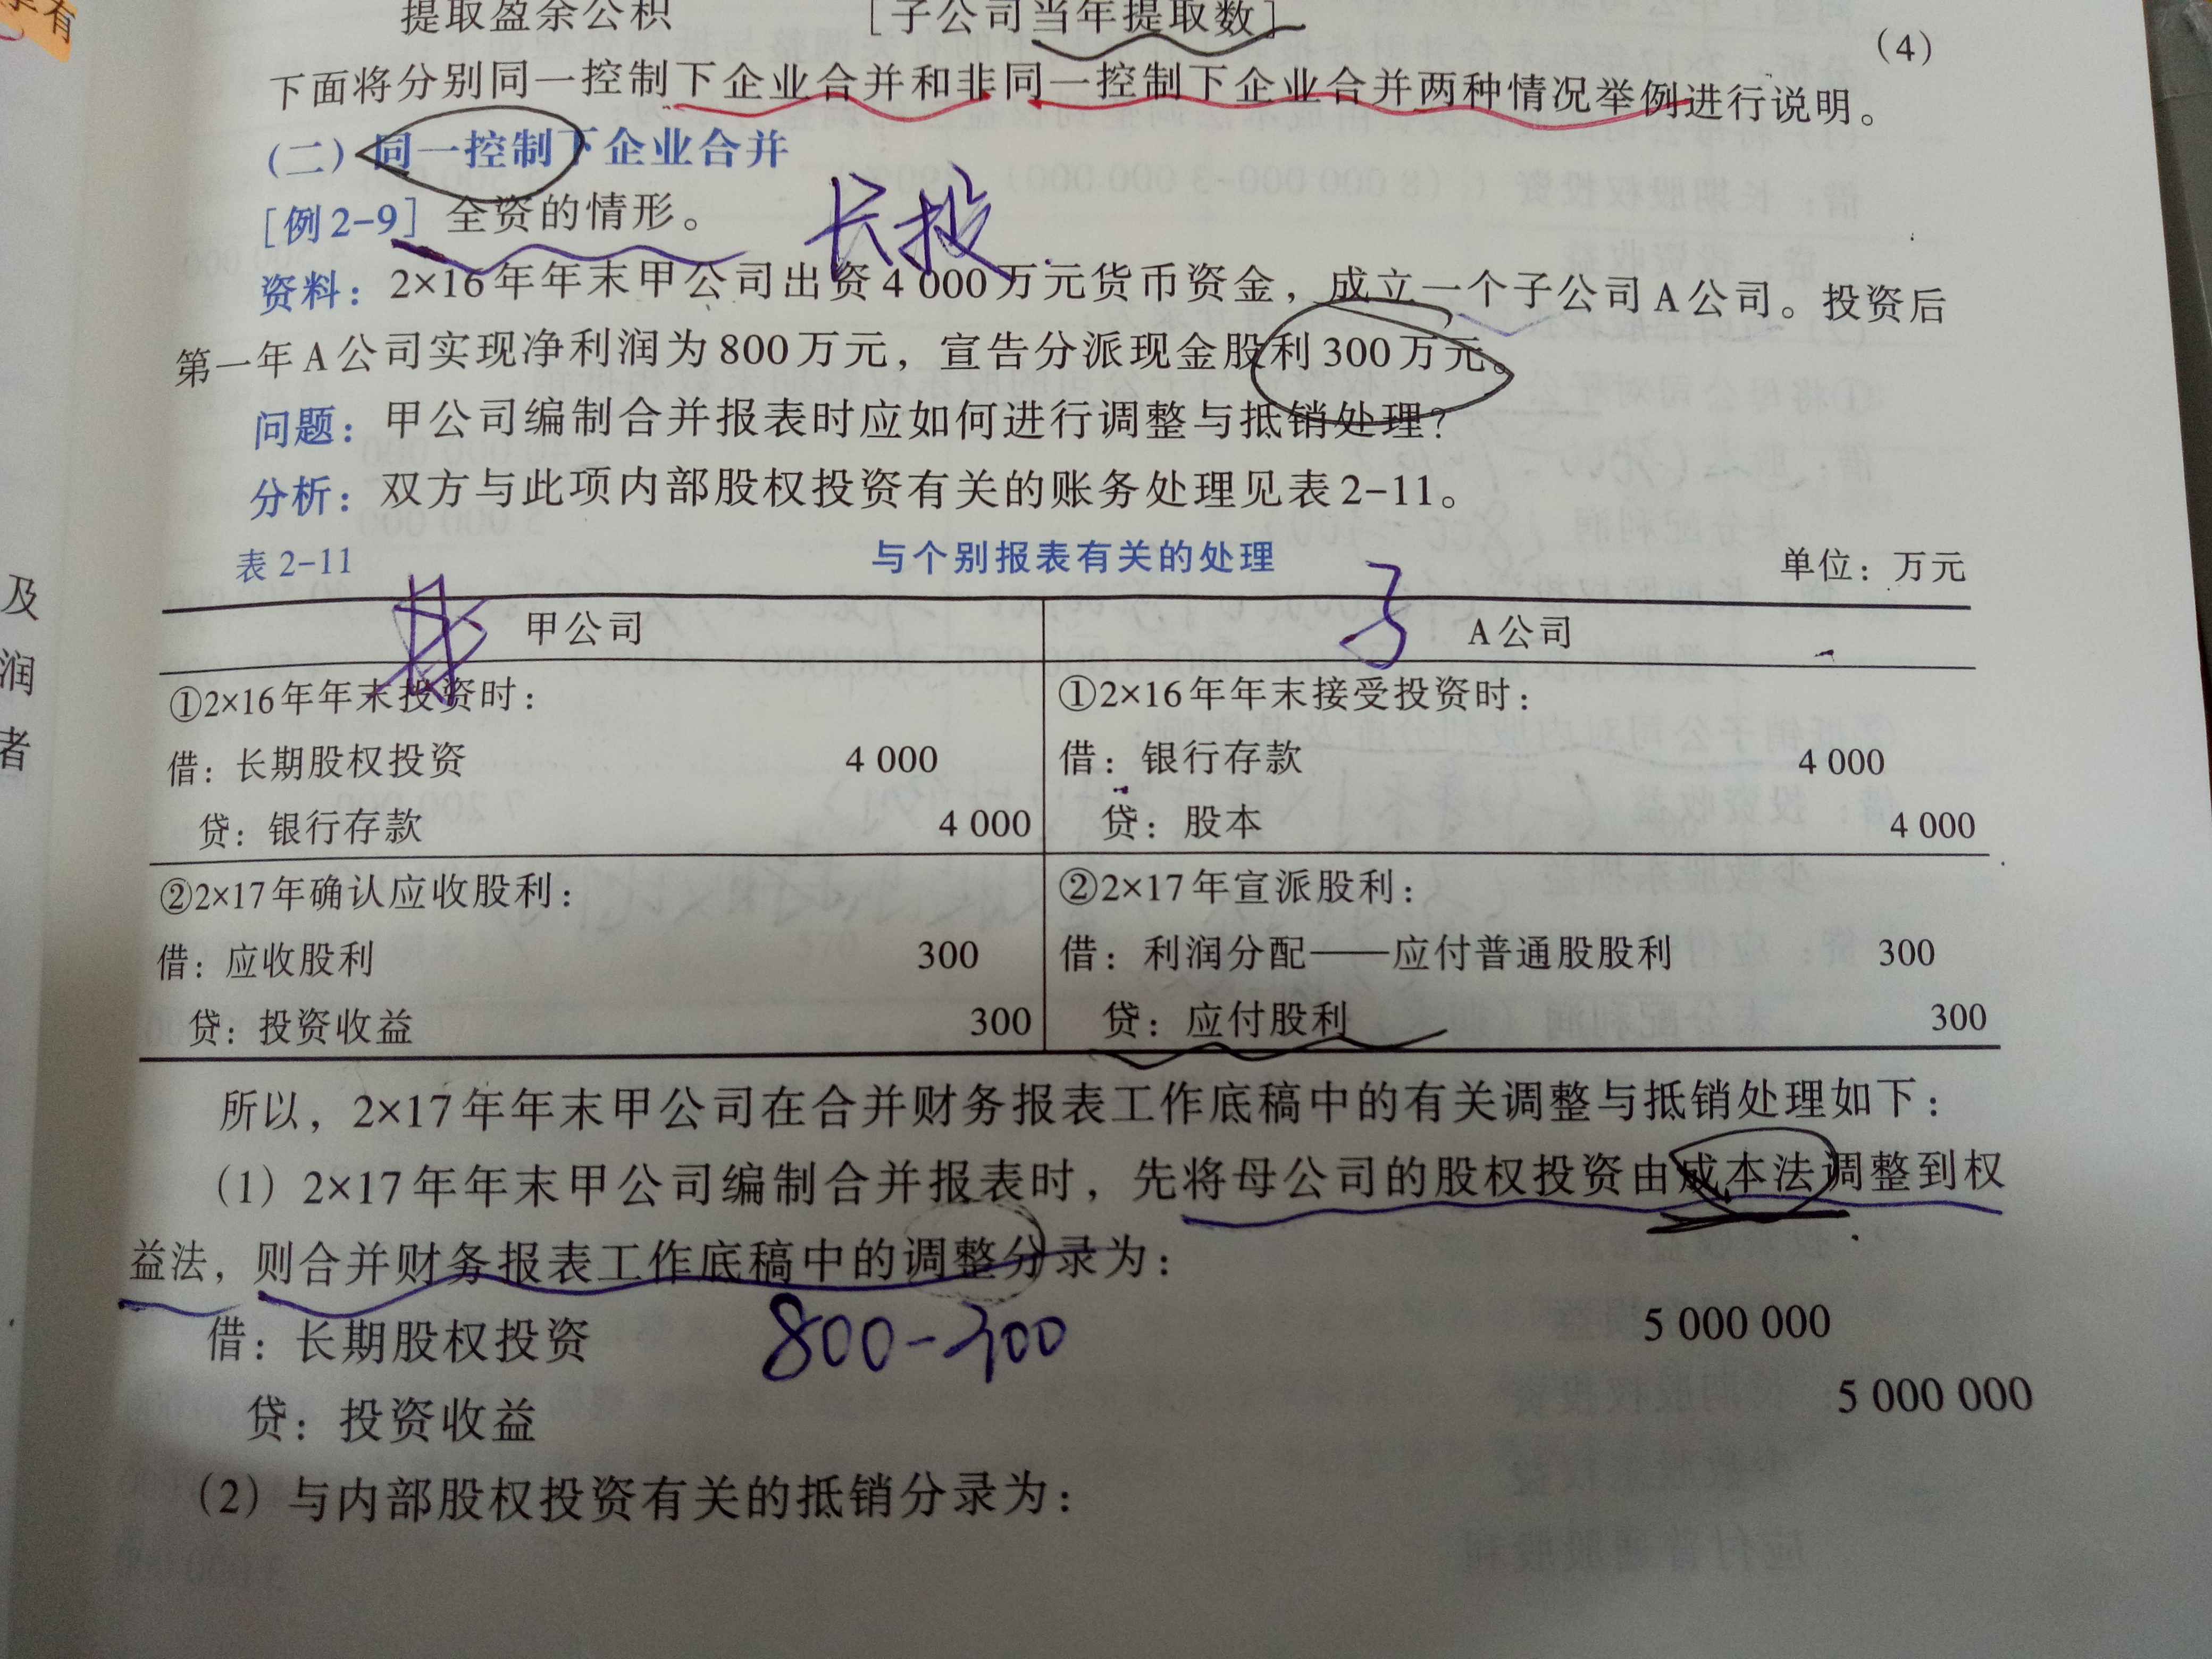 有
提取盈余公积 [子公司当年提取数]
(4)
下面将分别同一控制下企业合并和非同一控制下企业合并两种情况举例进行说明。
(二)同一控制下企业合并
[例2-9] 全资的情形。
长投
资料：2×16年年末甲公司出资4 000万元货币资金，成立一个子公司A公司。投资后
第一年A公司实现净利润为800万元，宣告分派现金股利300万元。
问题：甲公司编制合并报表时应如何进行调整与抵销处理?
分析：双方与此项内部股权投资有关的账务处理见表2-11。
表2-11 与个别报表有关的处理 单位：万元
甲公司 子 A公司
①2×16年年末投资时： ①2×16年年末接受投资时：
借：长期股权投资 4 000 借：银行存款 4 000
贷：银行存款 4 000 贷：股本 4 000
②2×17年确认应收股利： ②2×17年宣派股利：
借：应收股利 300 借：利润分配——应付普通股股利 300
贷：投资收益 300 贷：应付股利 300
所以，2×17年年末甲公司在合并财务报表工作底稿中的有关调整与抵销处理如下：
(1) 2×17年年末甲公司编制合并报表时，先将母公司的股权投资由成本法调整到权
益法，则合并财务报表工作底稿中的调整分录为：
借：长期股权投资 5 000 000
800-300
贷：投资收益 5 000 000
(2) 与内部股权投资有关的抵销分录为：
及
润
者